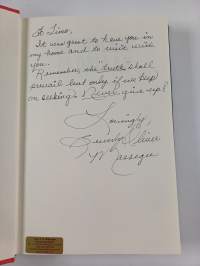 To Tina,
It was great to have you in
my home and to visit with
you.
Remember, the "truth" shall
prevail but only if we keep
on seeking. Never give up!
Lovingly,
Beverly Oliver
Massegee